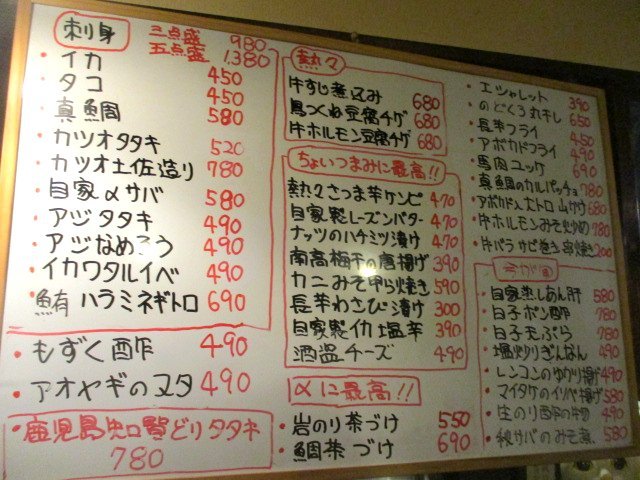 刺身
三点盛 980
五点盛 1,380
・イカ 450
・タコ 450
・真鯛 580
・カツオタタキ 520
・カツオ土佐造り 780
・自家〆サバ 580
・アジタタキ 490
・アジなめろう 490
・イカワタルイベ 490
・鮪ハラミネギトロ 690
・もずく酢 490
・アオヤギのヌタ 490
・鹿児島知覧どりタタキ
780
熱々
牛すじ煮込み 680
鳥つくね豆腐チゲ 680
牛ホルモン豆腐チゲ 680
ちょいつまみに最高!!
熱々さつま芋ケンピ 470
自家製レーズンバター 470
ナッツのハチミツ漬け 470
南高梅干の唐揚げ 390
カニみそ甲ら焼き 590
長芋わさび漬け 300
自家製イカ塩辛 390
酒盗チーズ 490
〆に最高!!
・岩のり茶づけ 550
・鯛茶づけ 690
・エシャレット 390
・のどくろ丸干し 650
・長芋フライ 450
・アボカドフライ 490
・馬肉ユッケ 690
・真鯛のカルパッチョ 780
・アボカド大トロ山かけ 680
・牛ホルモンみそ炒め 780
・牛バラサビ巻き串焼き 200
・自家蒸しあん肝 580
・白子ポン酢 780
・白子天ぷら 780
・塩炒りぎんなん 490
・レンコンのゆかり揚げ 490
・マイタケのイソベ揚げ 580
・生のり酢の物 490
・秋サバのみそ煮 580